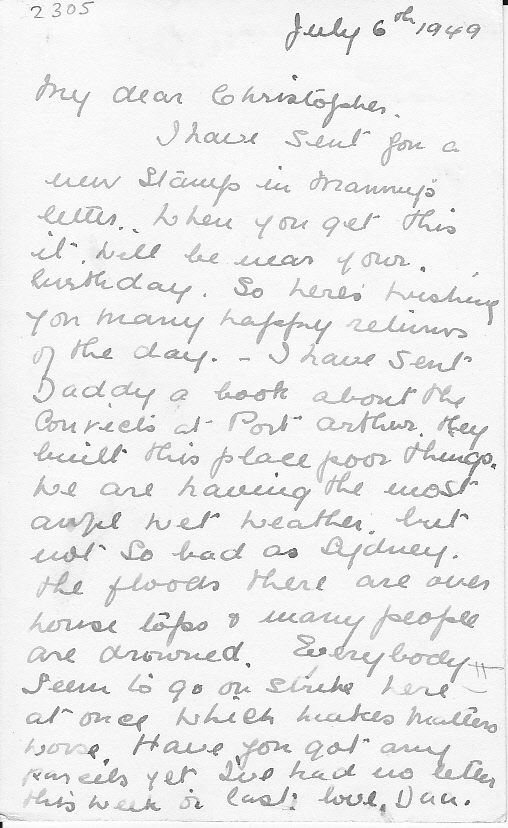 2305
July 6th 1949
My dear Christopher.
I have sent you a
new stamp in Mannys
letter.. When you get this
it. will be near your.
birthday. So here's wishing
you many happy returns
of the day. - I have sent
Daddy a book about the
Convicts at Port arthur. they
built this place poor things.
We are having the most
awful wet weather. but
not so bad as Sydney.
the floods there are over
house tops & many people
are drowned. Everybody
seem to go on strike here
at once which makes matters
worse. Have you got any
parcels yet I've had no letter
this week or last. love.